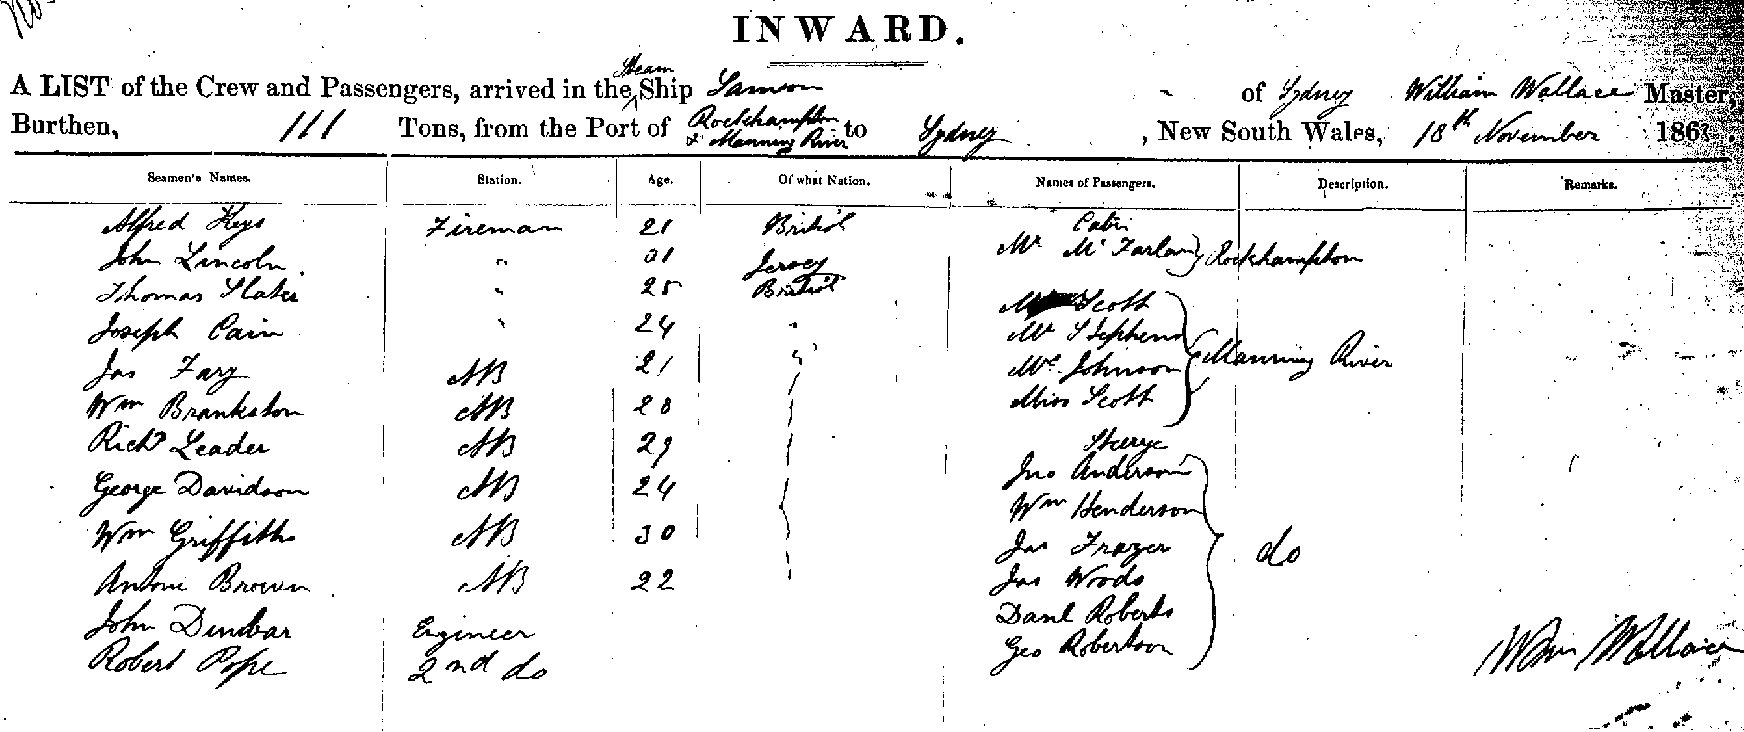 INWARD.
A LIST of the Crew and Passengers, arrived in the Steam Ship Samson " of Sydney William Wallace Master,
Burthen, 111 Tons, from the Port of Rockhampton & Manning River to Sydney, New South Wales, 18th November 186
Seamen's Names. Station. Age. Of what Nation. Names of Passengers. Description. Remarks.
Alfred Keys Fireman 21 British Cabin
John Lincoln " 21 Jersey Mr McFarlan Rockhampton
Thomas Slater " 25 British Scott
Joseph Cain " 24 " Mr Stephens
Jas Fary AB 21 " Mr Johnson Manning River
Wm Brankston AB 28 Miss Scott
Richd Leader AB 29 Steerge
George Davidson AB 24 Jno Anderson
Wm Griffiths AB 30 Wm Henderson
Antoni Brown AB 22 Jas Frazer do
John Dunbar Engineer Jas Woods
Robert Pope 2nd do Danl Roberts
Geo Robertson
Wm Wallace